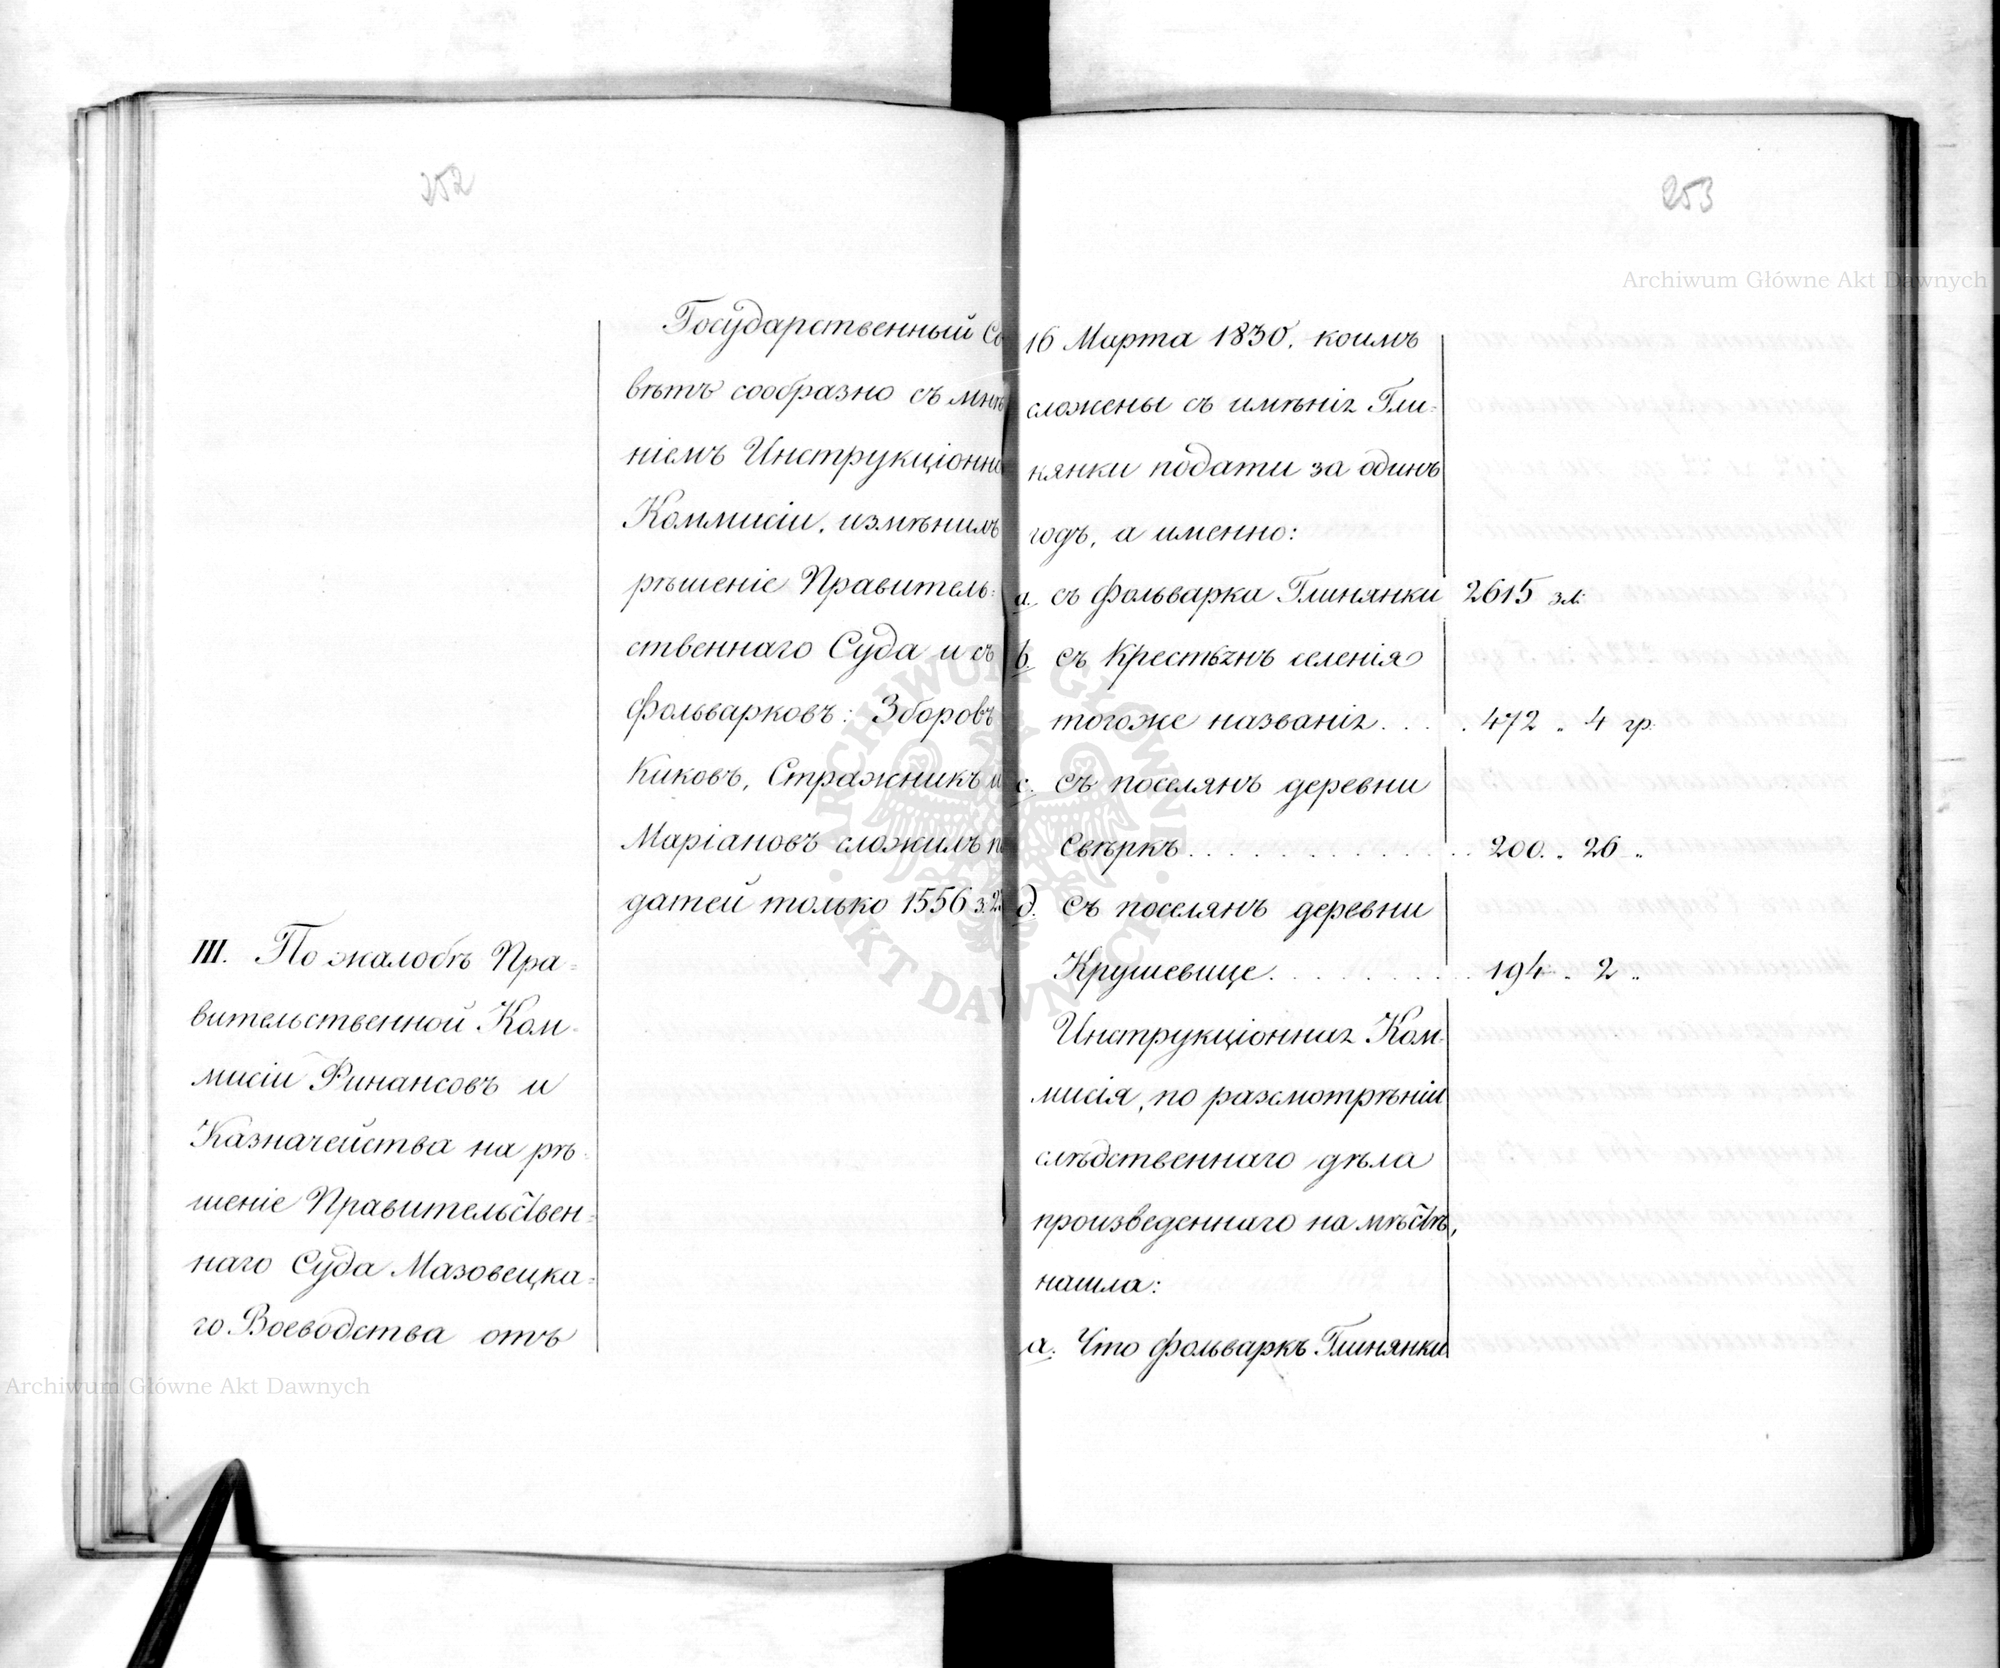 252
Государственный Со
вѣтъ сообразно съ мнѣ
ніемъ Инструкціонно
Коммисіи, измѣнилъ
рѣшеніе Правитель=
ственнаго Суда и съ
фольварковъ: Зборовъ
Киковъ, Стражникъ и
Маріановъ сложилъ по
датей только 1556 з. 2
III. По жалобѣ Пра=
вительственной Ком=
мисіи Финансовъ и
Казначейства на рѣ=
шеніе Правительствен=
наго Суда Мазовецка=
го Воеводства отъ
253
16 Марта 1830, коимъ
сложены съ имѣнія Гли=
нянки подати за одинъ
годъ, а именно:
a. съ фольварка Глинянки 2615 зл:
b. съ Крестьянъ селенія
тогоже названія . . . . 472 „ 4 гр.
c. съ поселянъ деревни
Свѣркъ . . . . . . . . . . . . 200 „ 26 „
d. съ поселянъ деревни
Крушевице . . . . . . . . . 194 „ 2 „
Инструкціонная Ком=
мисія, по разсмотрѣніи
слѣдственнаго дѣла
произведеннаго на мѣстѣ,
нашла:
a. Что фольваркъ Глинянки
Archiwum Główne Akt Dawnych
ARCHIWUM GŁÓWNE AKT DAWNYCH
Archiwum Główne Akt Dawnych